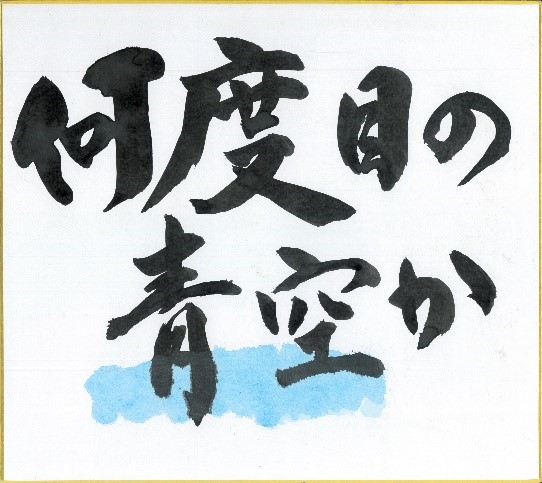 何度目の
青空か